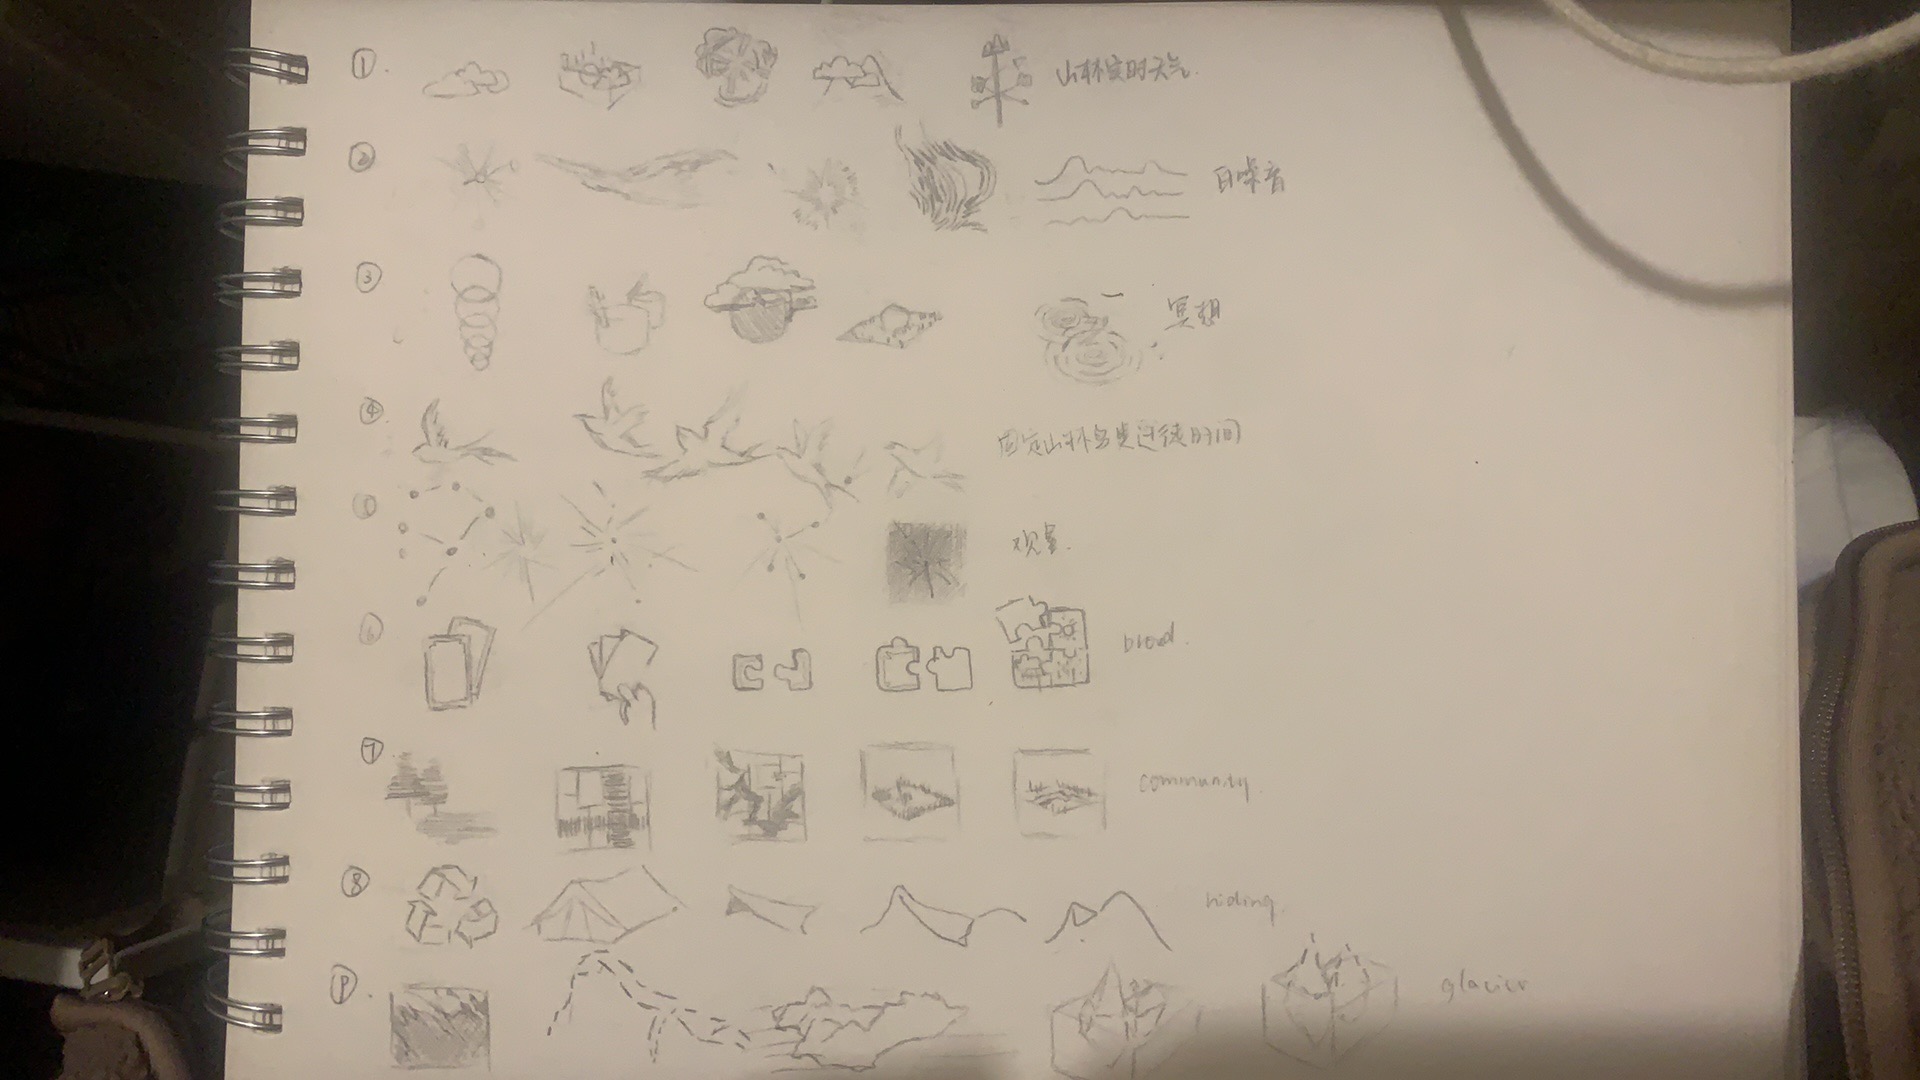 ① 山林实时天气
② 白噪音
③ 冥想
④ 固定山林鸟类迁徙时间
⑤ 观星
⑥
⑦ community
⑧ riding
⑨ glacier